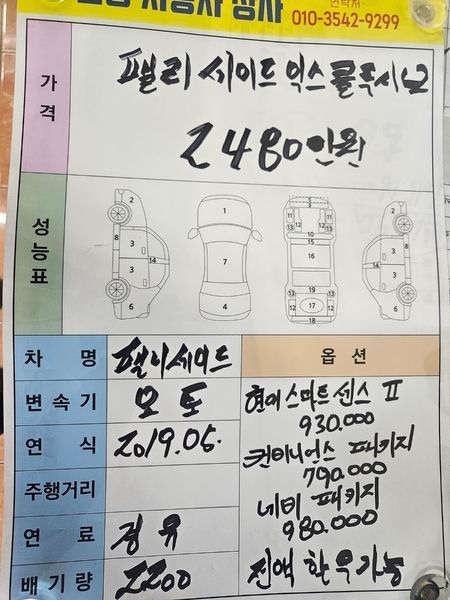 자동차 상사
연락처
010-3542-9299
가격
팰리세이드 익스클루시브
2480만원
성능표
2 8 3 3 14 6
1 7 4
9 11 11 12 12 13 13 10 15 16 19 13 12 17 12 13 18
2 3 8 14 3 6
차 명
팰리세이드
옵 션
변속기
오토
현대스마트센스 II
930.000
연 식
2019.05.
컨비니언스 패키지
790.000
주행거리
네비 패키지
980.000
연 료
경유
배기량
2200
전액 할부가능